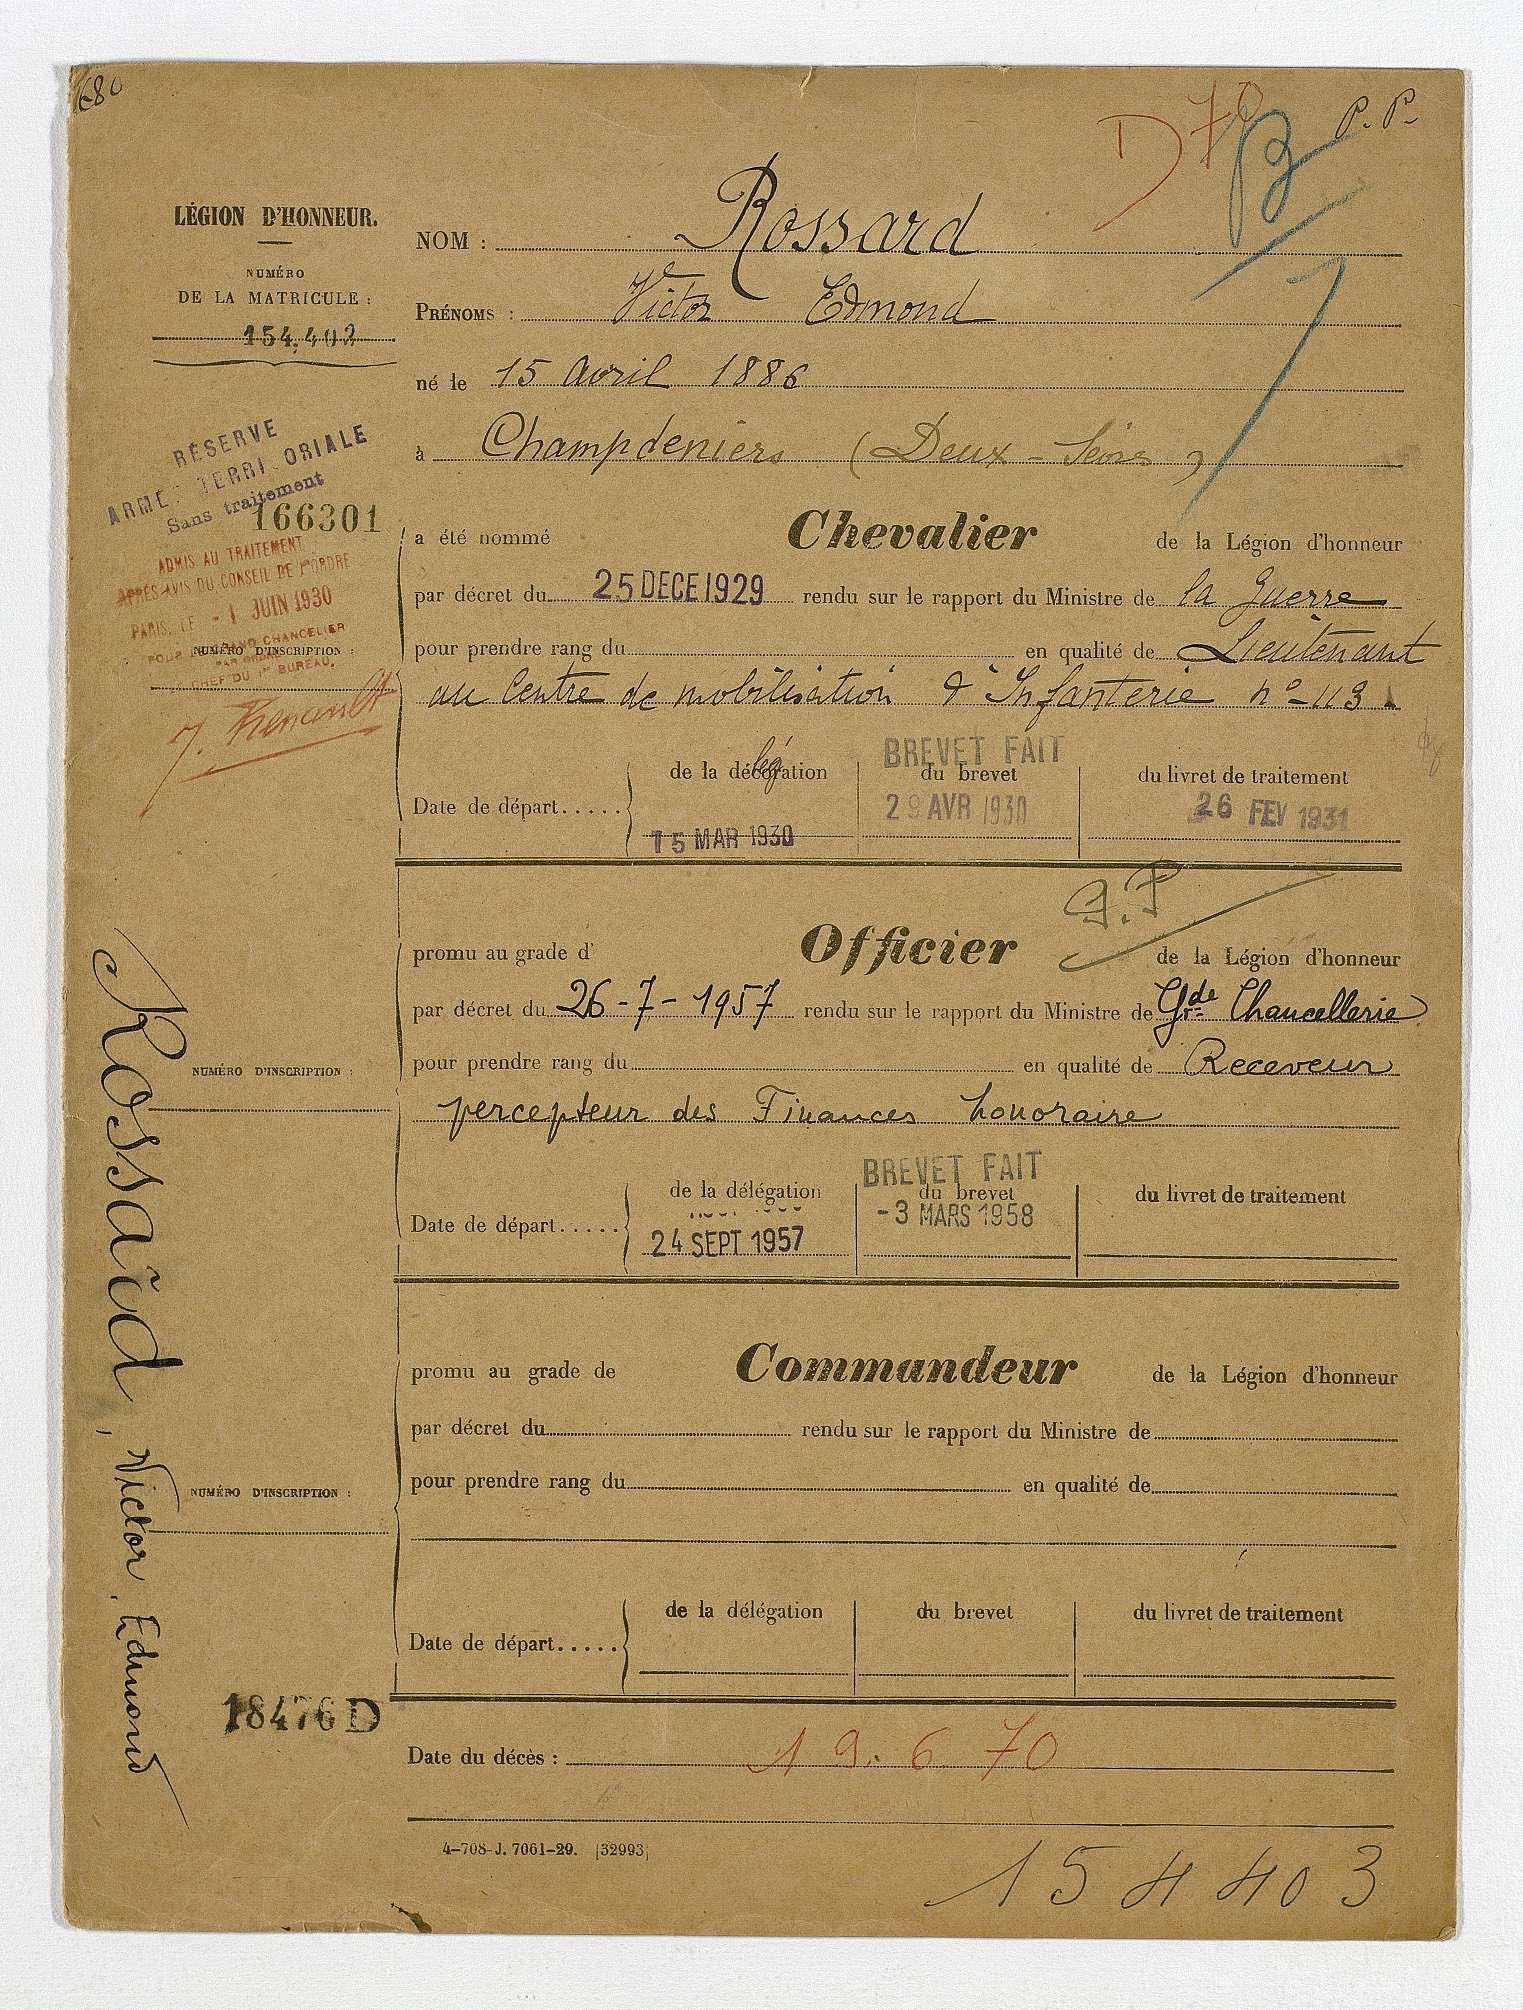 680
D 70
B
P. P.
LÉGION D'HONNEUR.
NUMÉRO
DE LA MATRICULE :
154,403
NOM : Rossard
PRÉNOMS : Victor Edmond
né le 15 Avril 1886
à Champdeniers (Deux-Sèvres)
RÉSERVE
ARMÉE TERRITORIALE
Sans traitement
166301
ADMIS AU TRAITEMENT
APRÈS AVIS DU CONSEIL DE L'ORDRE
PARIS, LE - 1 JUIN 1930
POUR LE GRAND CHANCELIER
PAR ORDRE
LE CHEF DU 1er BUREAU,
NUMÉRO D'INSCRIPTION :
a été nommé Chevalier de la Légion d'honneur
par décret du 25 DECE 1929 rendu sur le rapport du Ministre de la Guerre
pour prendre rang du en qualité de Lieutenant
au Centre de mobilisation d'Infanterie n° 113
Date de départ.....
de la décoration
lég
15 MAR 1930
BREVET FAIT
du brevet
29 AVR 1930
du livret de traitement
26 FEV 1931
G.P
promu au grade d' Officier de la Légion d'honneur
par décret du 26-7-1957 rendu sur le rapport du Ministre de Grde Chancellerie
NUMÉRO D'INSCRIPTION :
pour prendre rang du en qualité de Receveur
percepteur des Finances honoraire
Date de départ.....
de la délégation
24 SEPT 1957
BREVET FAIT
du brevet
-3 MARS 1958
du livret de traitement
Rossard, Victor, Edmond
promu au grade de Commandeur de la Légion d'honneur
par décret du rendu sur le rapport du Ministre de
pour prendre rang du en qualité de
NUMÉRO D'INSCRIPTION :
Date de départ.....
de la délégation
du brevet
du livret de traitement
18476 D
Date du décès : 19. 6 70
4-708-J. 7061-29. [32993]
154403